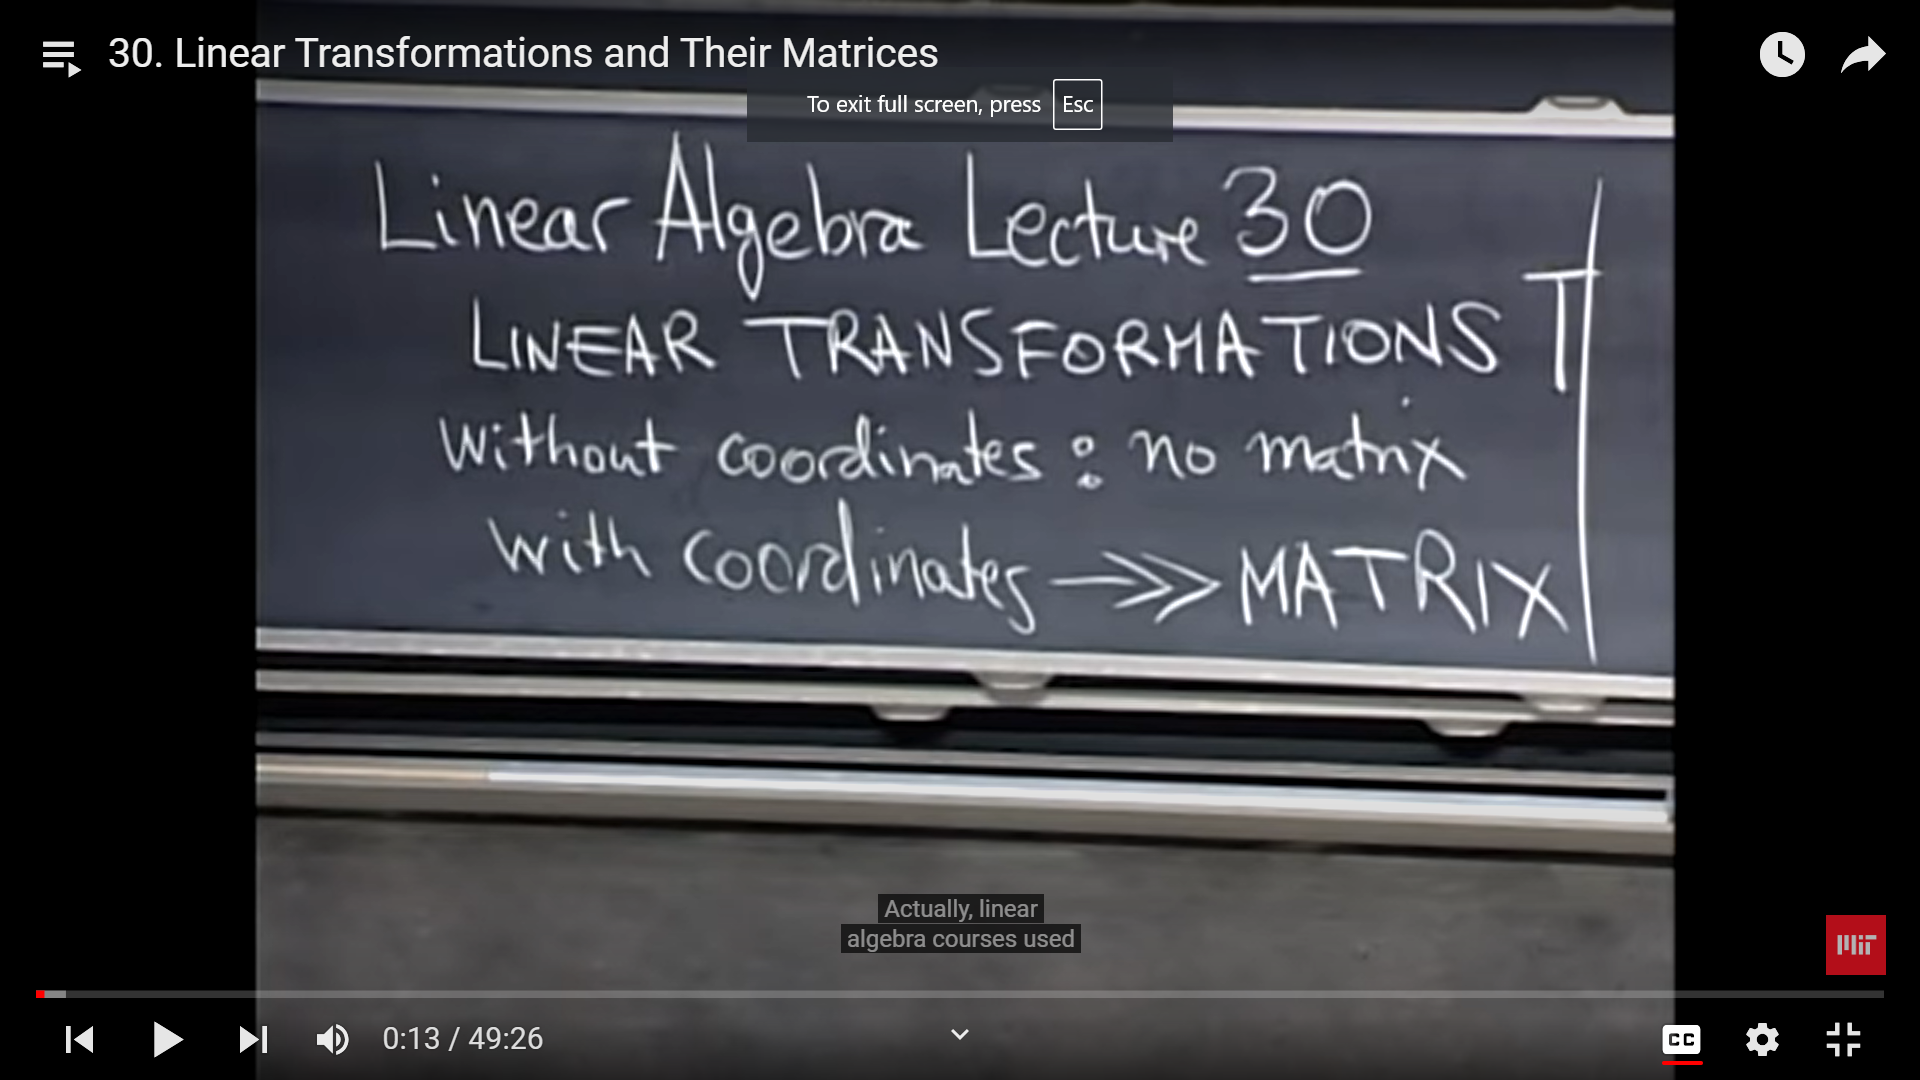 30. Linear Transformations and Their Matrices
To exit full screen, press Esc
Linear Algebra Lecture 30
LINEAR TRANSFORMATIONS T
without coordinates : no matrix
with coordinates ⟶>> MATRIX
Actually, linear
algebra courses used
MIT
0:13 / 49:26
CC